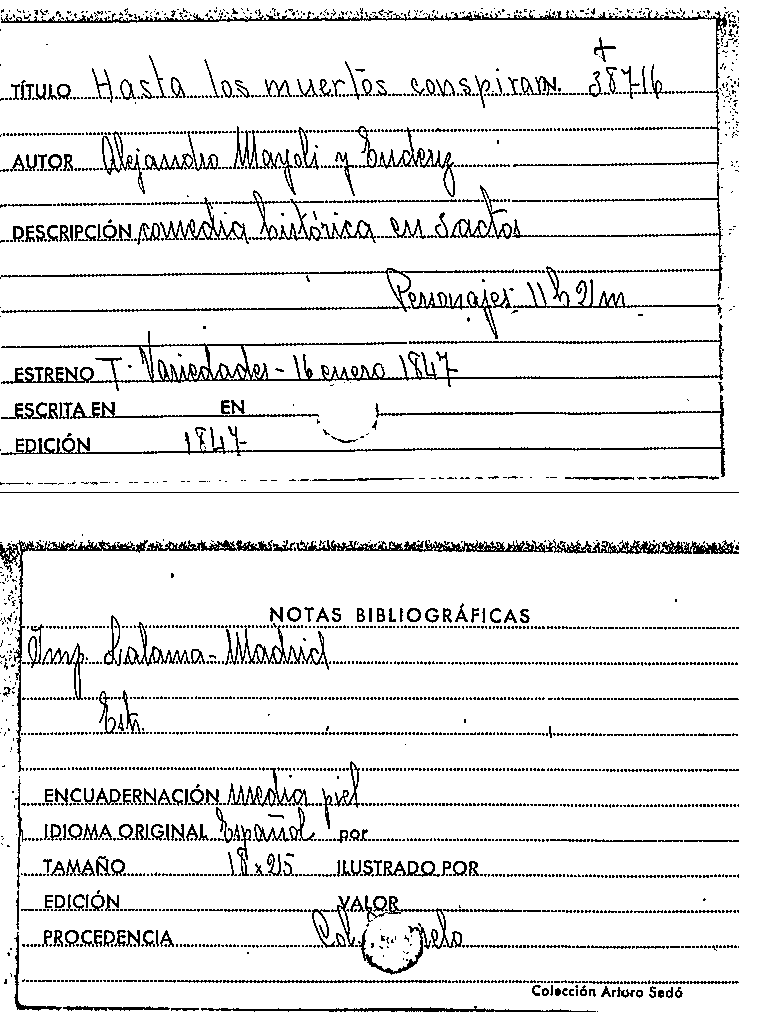 +
TÍTULO Hasta los muertos conspiran. 387-16
AUTOR Alejandro Mayoli y Enderiz
DESCRIPCIÓN comedia histórica en 3 actos
Personajes 11h 2m
ESTRENO T. Variedades - 16 enero 1847
ESCRITA EN EN
EDICIÓN 1847
NOTAS BIBLIOGRÁFICAS
Imp. Lalama - Madrid
Estr.
ENCUADERNACIÓN media piel
IDIOMA ORIGINAL Español por
TAMAÑO 18 x 25 ILUSTRADO POR
EDICIÓN VALOR
PROCEDENCIA Col.
Colección Arturo Sedó